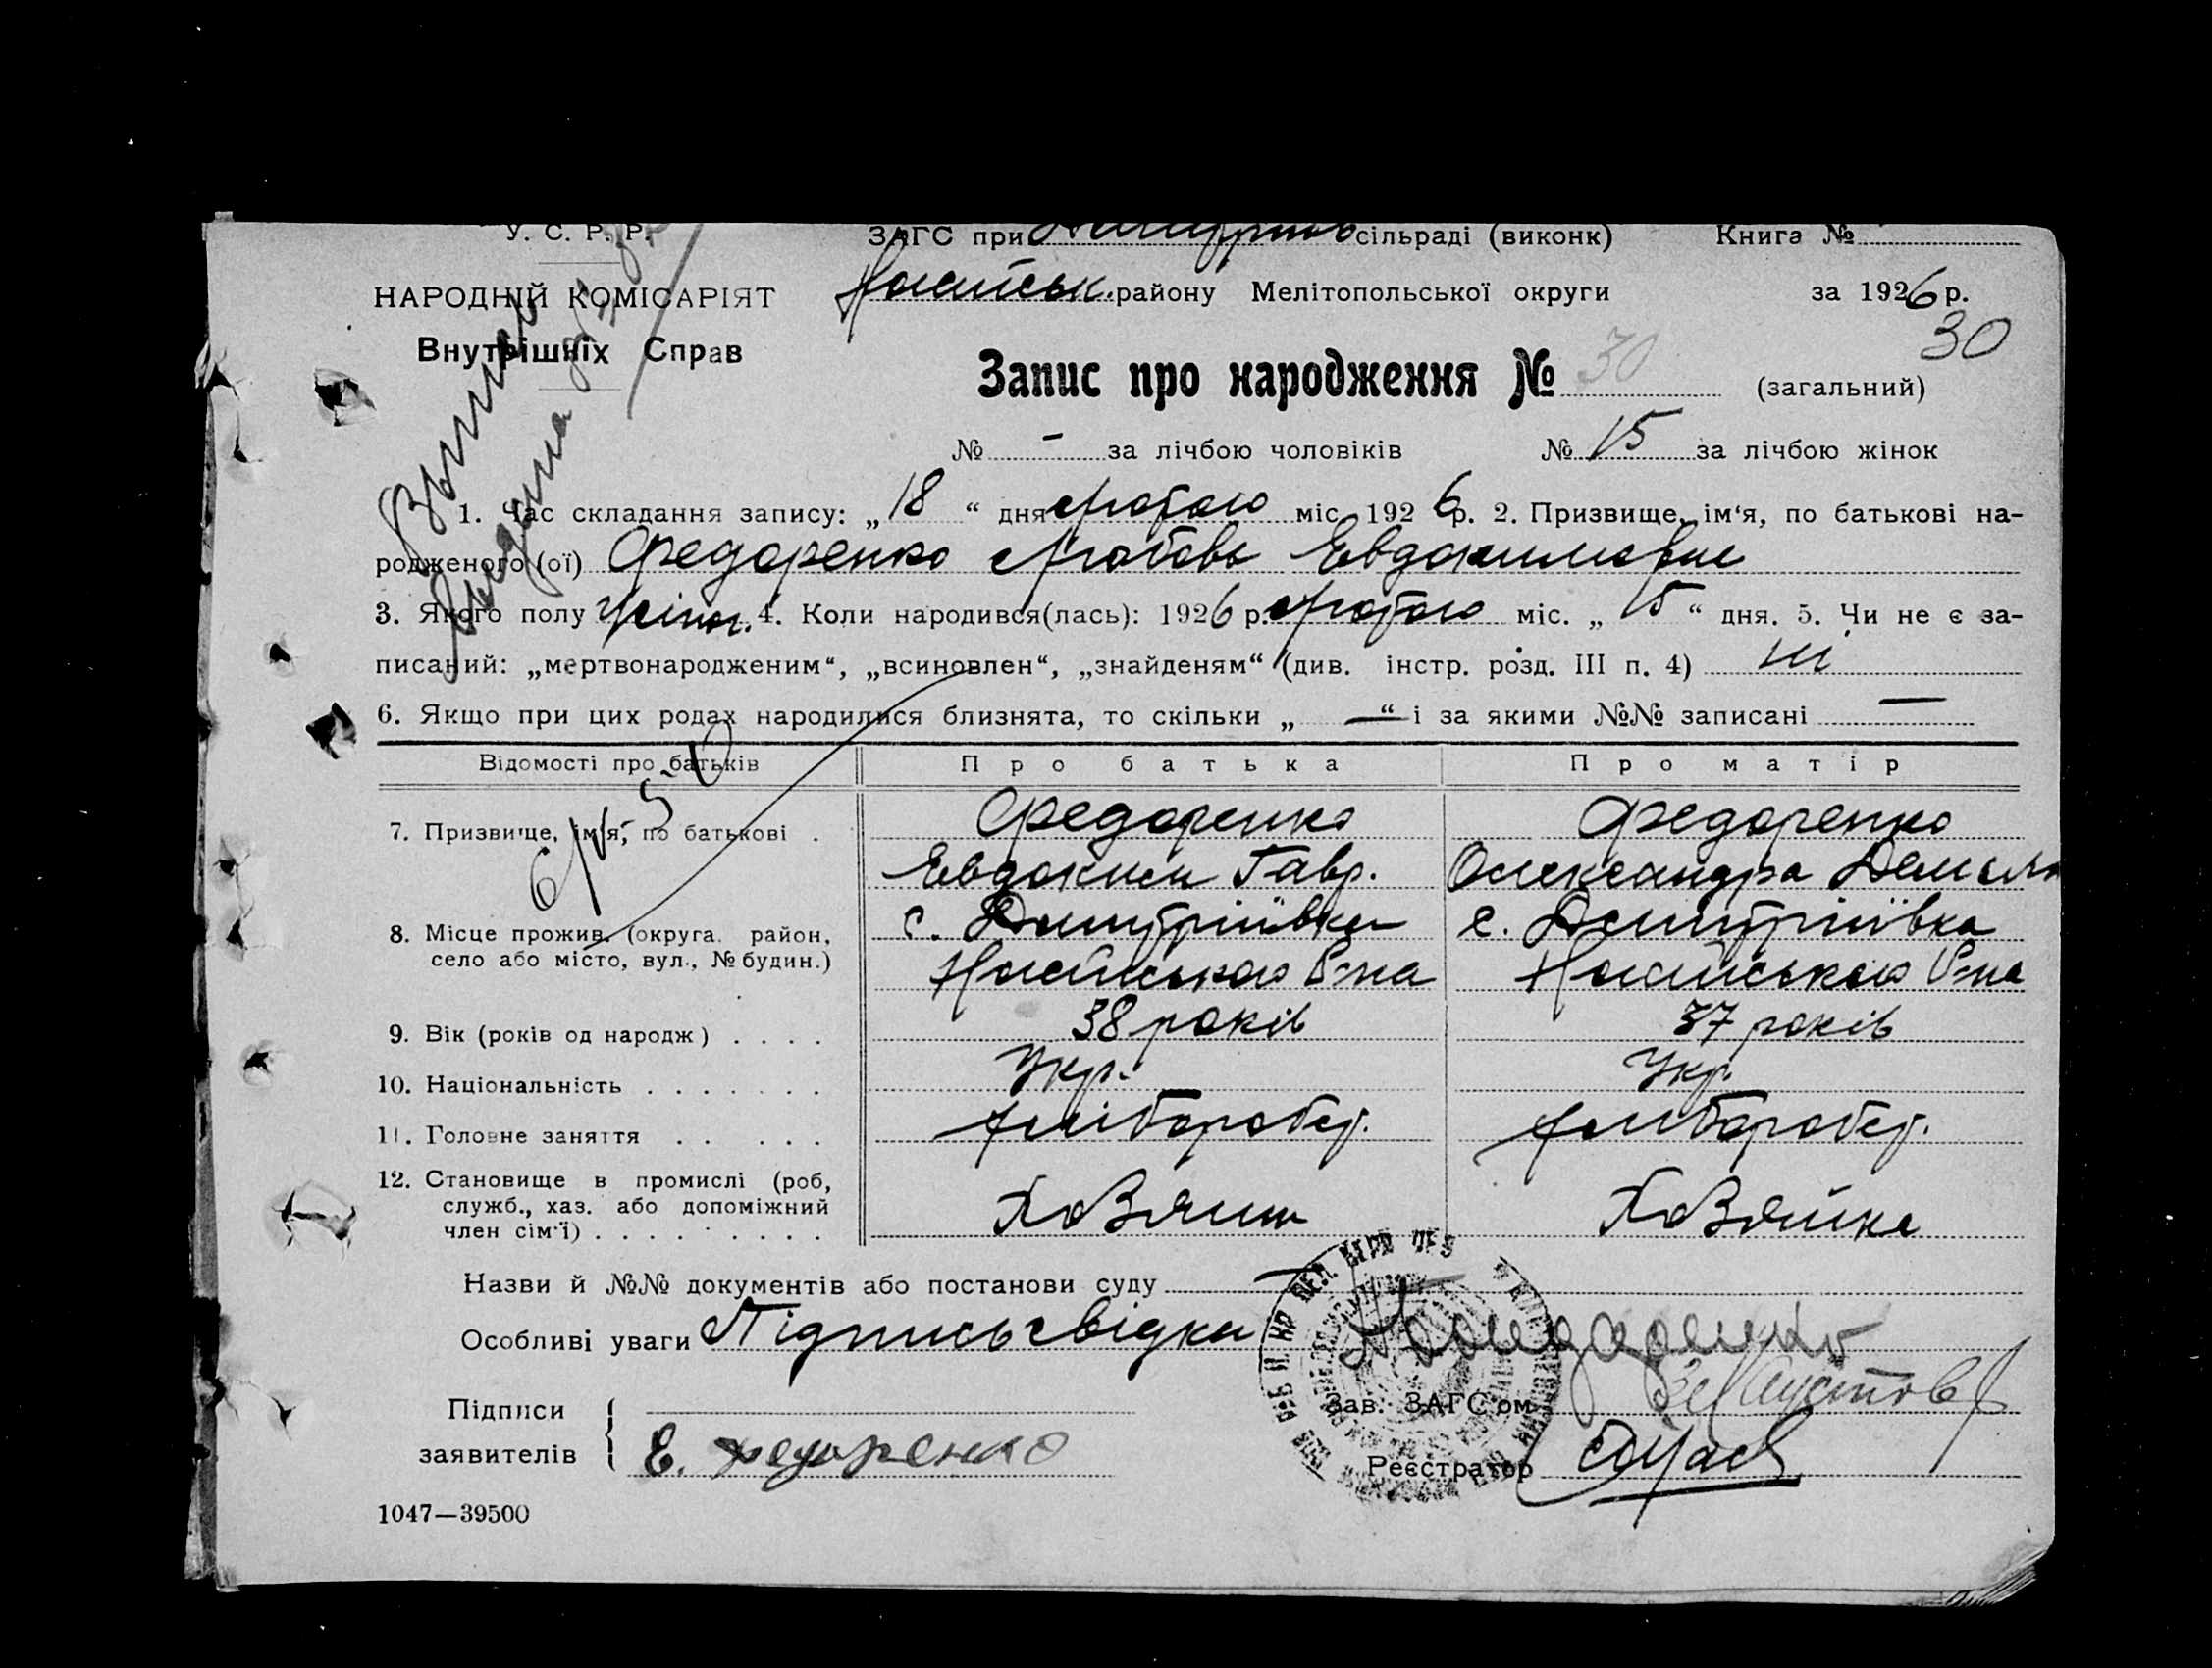 У. С. Р. Р. ЗАГС при сільраді (виконк) Книга №
НАРОДНІЙ КОМІСАРІЯТ Ногайськ. району Мелітопольської округи за 1926 р.
Внутрішніх Справ 30
Запис про народження № 30 (загальний)
№ - за лічбою чоловіків № 15 за лічбою жінок
Выпись
выдана
1. Час складання запису: „18“ дня лютого міс 1926 р. 2. Призвище, ім‘я, по батькові на-
родженого (ої) Федоренко Любовь Евдокимовне
3. Якого полу жіноч. 4. Коли народився(лась): 1926 р. лютого міс. „15“ дня. 5. Чи не є за-
писаний: „мертвонародженим“, „всиновлен“, „знайденям“ (див. інстр. розд. III п. 4) ні
6. Якщо при цих родах народилися близнята, то скільки „ — “ і за якими №№ записані —
Відомості про батьків Про батька Про матір
7. Призвище, ім‘я, по батькові . Федоренко Федоренко
Евдоким Гавр. Олександра
8. Місце прожив. (округа, район, с. Дмитріївка с. Дмитріївка
село або місто, вул., № будин.) Ногайського Р-на Ногайського Р-на
9. Вік (років од народж) . . . . 38 років 37 років
10. Національність . . . . . . . Укр. Укр.
11. Головне заняття . . . . . хлібороб. хлібороб.
12. Становище в промислі (роб,
служб., хаз. або допоміжний Хозяин Хозяйка
член сім‘ї) . . . . . . . . .
Назви й №№ документів або постанови суду —
Особливі уваги Підпись свідка
Підписи Зав. ЗАГС‘ом
заявителів Е. Федоренко Реєстратор
1047—39500